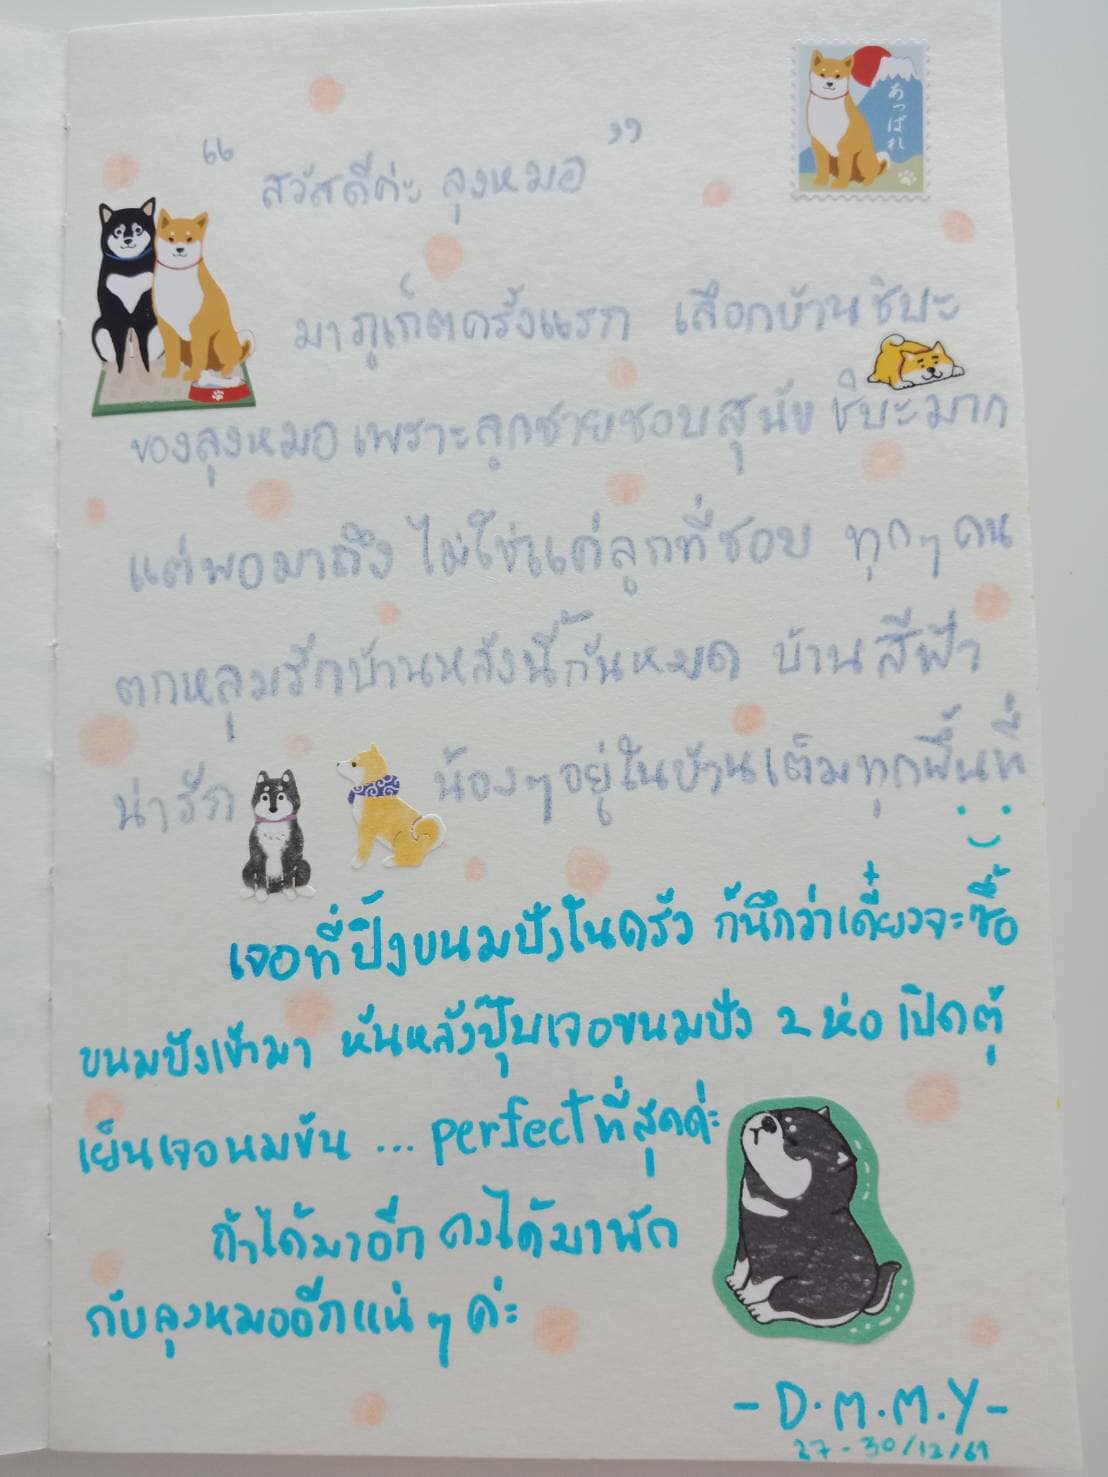 あっぱれ
“ สวัสดีค่ะ ลุงหมอ ”
มาภูเก็ตครั้งแรก เลือกบ้านชิบะ
ของลุงหมอเพราะลูกชายชอบสุนัขชิบะมาก
แต่พอมาถึง ไม่ใช่แค่ลูกที่ชอบ ทุกๆคน
ตกหลุมรักบ้านหลังนี้กันหมด บ้านสีฟ้า
น่ารัก น้องๆอยู่ในบ้านเต็มทุกพื้นที่
เจอที่ปิ้งขนมปังในครัว ก็นึกว่าเดี๋ยวจะซื้อ
ขนมปังเข้ามา หันหลังปุ๊บเจอขนมปัง 2 ห่อ เปิดตู้
เย็นเจอนมข้น ... perfect ที่สุดค่ะ
ถ้าได้มาอีก คงได้มาพัก
กับลุงหมออีกแน่ๆ ค่ะ
- D.M.M.Y -
27 - 30/12/61